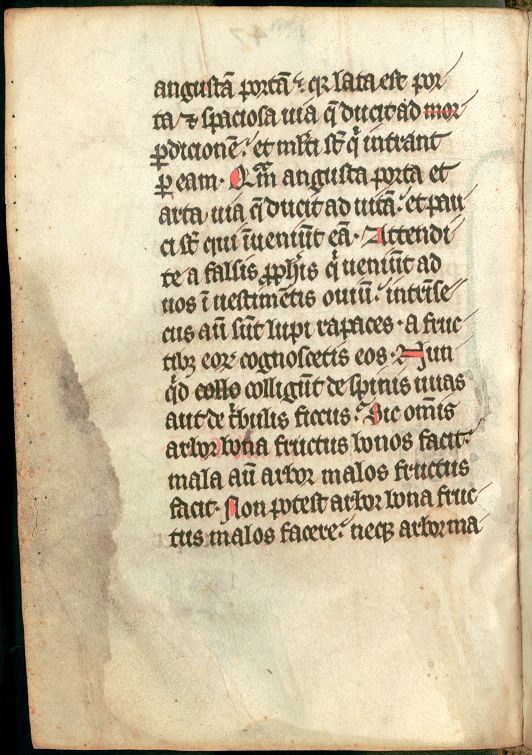 angustā portā ⁊ qr lata est por
ta ⁊ spaciosa uia q̄ ducit ad mor
ꝑdicionē. et mlti st̄ qi intrant
ꝑ eam. Qm̄ angusta porta et
arta uia q̄ ducit ad uitā. et pau
ci st̄ qui īueniūt eā. Attendi
te a falsis ꝓphis qi ueniūt ad
uos ī uestimētis ouiū. intrīse
cus aū sūt lupi rapaces. A fruc
tibꝫ eoꝝ cognoscetis eos. Nun
qd collo colligūt de spinis uuas
aut de tbulis ficcus. Sic om̄is
arbor bona fructus bonos facit.
mala aū arbor malos fructus
facit. Non potest arbor bona fruc
tus malos facere. neqꝫ arbor ma